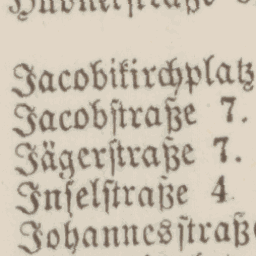 Jacobikirchplatz
Jacobſtraße 7.
Jägerſtraße 7.
Inſelſtraße 4
Johannesſtraße